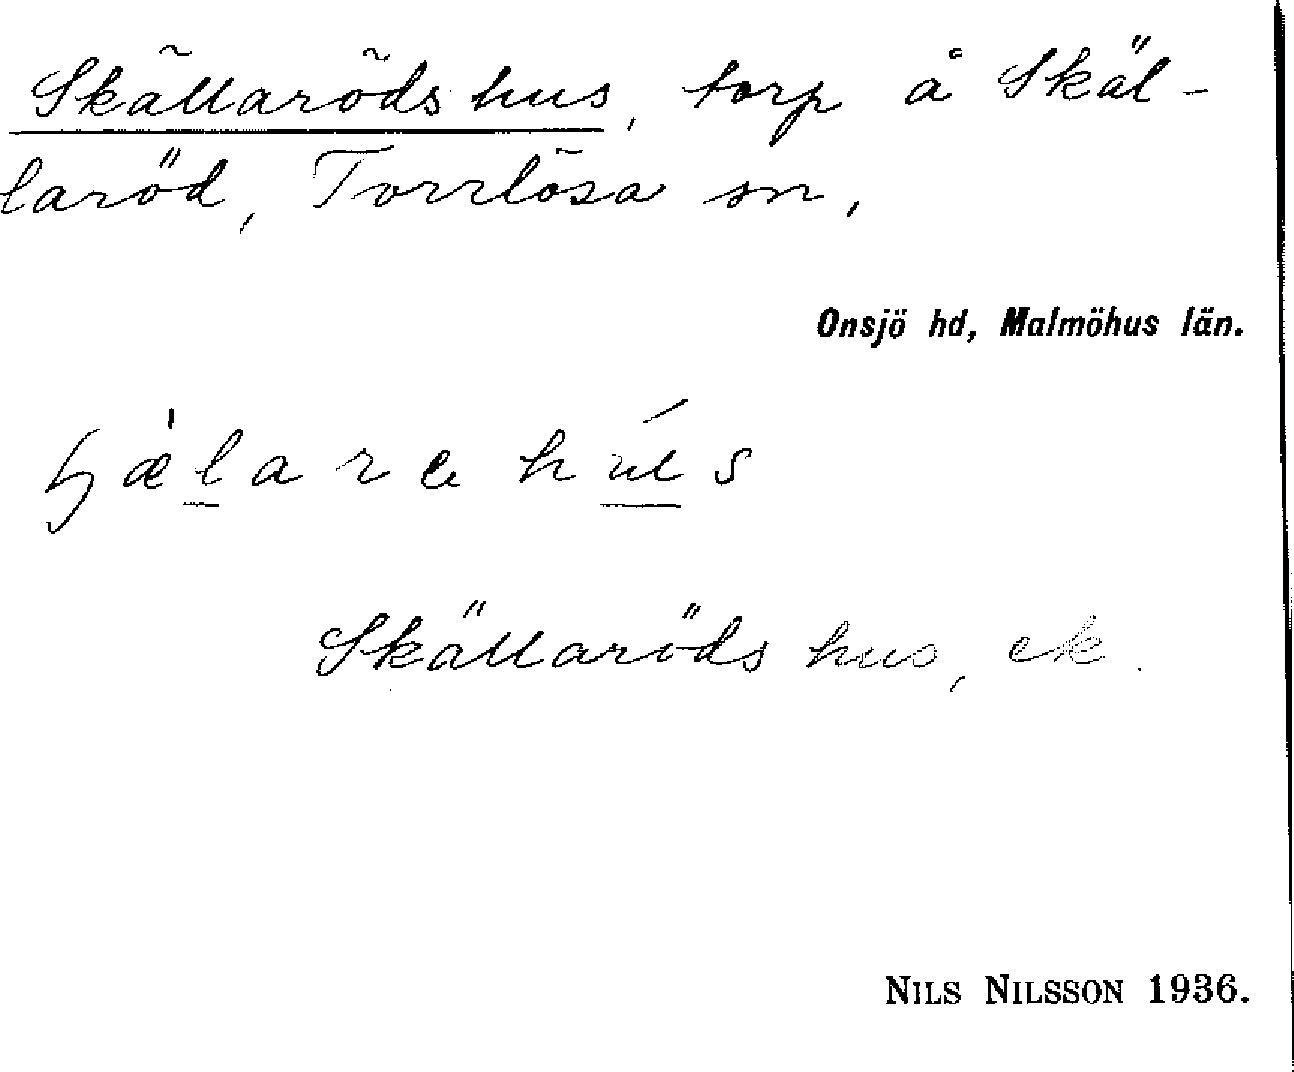 Skällarödshus, torp å Skäl-
laröd, Torrlösa sn,
Onsjö hd, Malmöhus län.
Skällaröds hus, ek.
NILS NILSSON 1936.